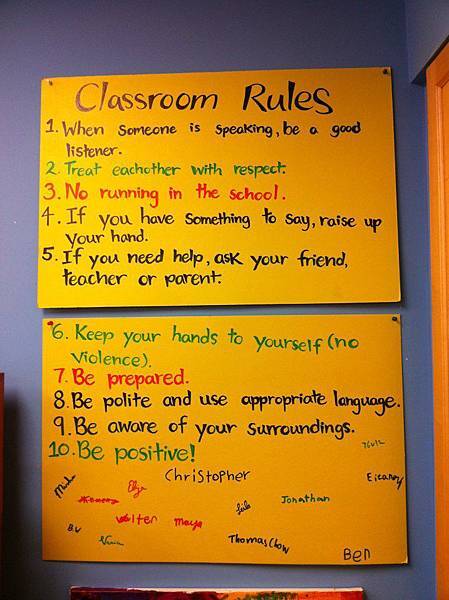 Classroom Rules
1. When someone is speaking, be a good
listener.
2. Treat eachother with respect.
3. No running in the school.
4. If you have something to say, raise up
your hand.
5. If you need help, ask your friend,
teacher or parent.
6. Keep your hands to yourself (no
violence).
7. Be prepared.
8. Be polite and use appropriate language.
9. Be aware of your surroundings.
10. Be positive!
Christopher
Jonathan
Walter maya
B.V
Thomas Chow
Ben